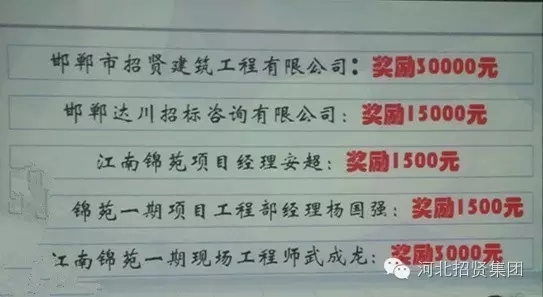 邯郸市招贤建筑工程有限公司：奖励30000元
邯郸达川招标咨询有限公司：奖励15000元
江南锦苑项目经理安超：奖励1500元
锦苑一期项目工程部经理杨国强：奖励1500元
江南锦苑一期现场工程师武成龙：奖励3000元
河北招贤集团